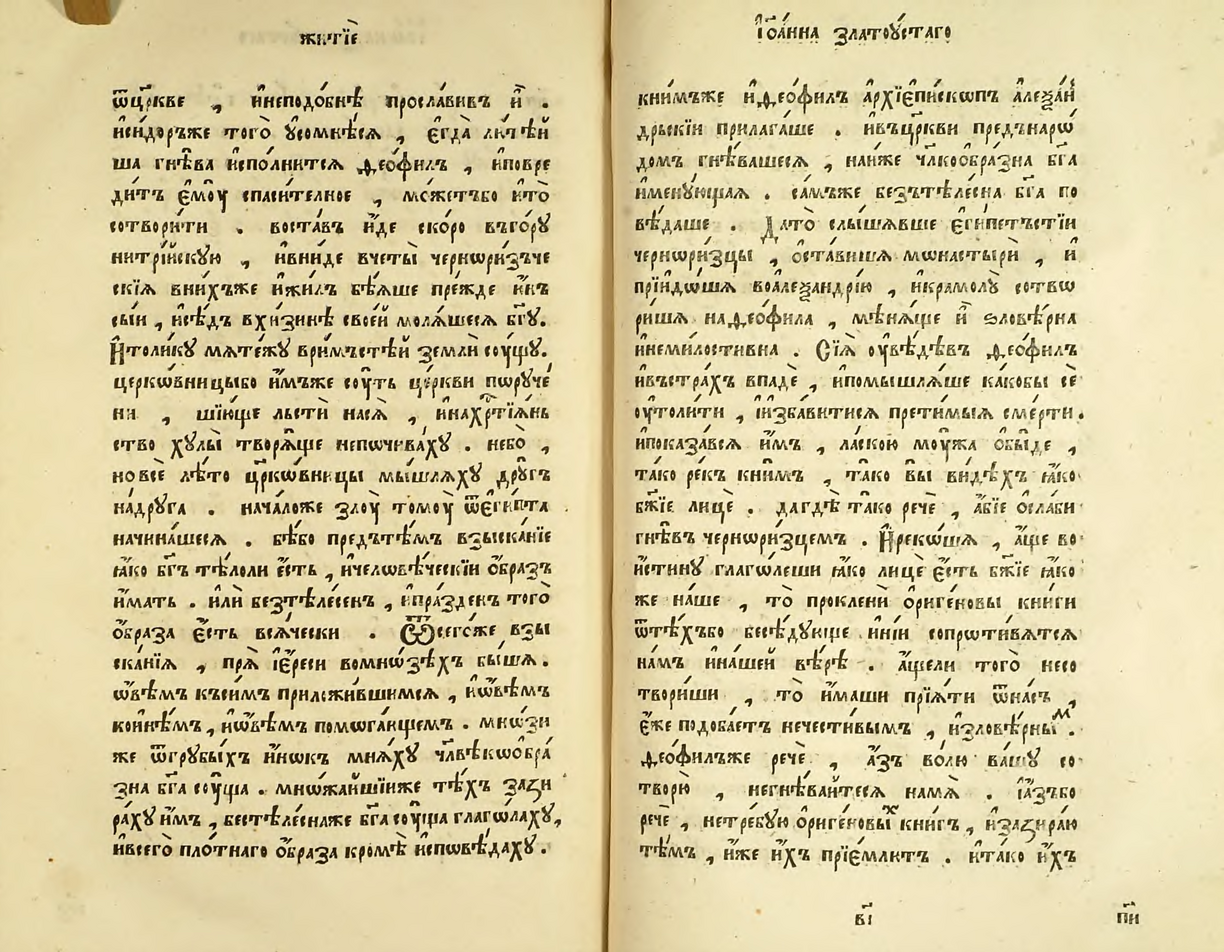 житїѐ
ѿцр҃кве , ѝнеподо́бнѣ просла́вивъ и҆̀ .
и҆сидоръже того̀ ꙋсомнѣ́сѧ , є҆гда̀ ли́чїѝ
ша гнѣ̑ва и҆спо́лнитсѧ ѳео́филъ , и҆повре
ди́тъ є҆моу̀ спаси́телное , мо́жетъбо и҆то̀
сотвори́ти . воста́въ и҆́де ско́ро въгорꙋ̀
нитрі́йскꙋю , и҆вни́де вчеты̀ чернори́зъче
скїѧ вни́хъже и҆жи́лъ бѣ́ѧше пре́жде и҆нъ
сы́и , и҆сѣ́дъ вхи́зинѣ свое́й молѧ́шесѧ бг҃ꙋ.
И҆толи́кꙋ мѧте́жꙋври́мъстѣй землѝ соу́щꙋ.
церкѡ́вницыбо и҆́мъже соу́ть це́ркви пѡрꙋче́
ни , шїю́ще льстѝ насѧ̀ , и҆нахр҃тїѧ́нь
ство хꙋлы̀ творѧ́ще непѡчива́хꙋ . небо̀ ,
но всѐ лѣ́то цр҃кѡвницы мы́шлѧхꙋ дрꙋ́гъ
на́дрꙋга . нача́ложе злоу̀ томоу̀ ѿєги́пта
начина́шесѧ . бѣ́бо предътѣ́мъ взыска́нїе
ꙗ҆́ко бг҃ъ тѣ́лоли є҆́сть , и҆человѣ́ческїи о҆́бразъ
и҆́мать . и҆лѝ безтѣле́сенъ , и҆пра́зденъ того̀
о҆́браза є҆́сть всѧ́чески . Ѿсего́же взы
ска́нїѧ , прѧ̀ і҆є́реси вомнѡ́зѣхъ бы́шѧ .
ѡ҆вѣ́мъ къси́мъ приложи́вшимсѧ , и҆ѡ҆вѣ́мъ
кои҆нѣ́мъ , и҆ѡ҆вѣ́мъ помѡга́ющемъ . мно́зи
же ѿгрꙋ́быхъ и҆́нѡкъ мнѧ́хꙋ чл҃вѣкѡобра́
зна бг҃а соу́ща . мнѡжа́йшїиже тѣ́хъ зази
ра́хꙋ и҆̀мъ , бестѣле́снаже бг҃а соу́ща глаго́лахꙋ ,
и҆всего̀ пло́тнаго о҆́браза кромѣ̀ и҆сповѣ́дахꙋ .
і҆ѡа́нна златоꙋ́стаго
кни́мъже и҆ѳео́филъ а҆рхїєпи́скѡпъ а҆леѯа́н
дрьскїи прилага́ше . и҆въцр҃кви предънаро́
домъ гнѣ́вашесѧ , наи҆́же чл҃кообра́зна бг҃а
и҆менꙋ́ющаѧ . са́мъже безътѣле́сна бг҃а по
вѣ́даше . Дато̀ слы́шѧвше є҆ги́петъстїи
чернори́зцы , ѻ҆ста́вишѧ мѡнастырѝ , и҆
прїидо́шѧ воалеѯандрі́ю , и҆крамолꙋ̀ сотво
ри́шѧ наѳео́фила , мѣнѧ́ще и҆̀ ѕловѣ́рна
и҆неми́лостивна . Сїѧ̀ оу҆вѣ́дѣвъ ѳео́филъ
и҆въстра́хъ впадѐ , и҆помышлѧ́ше ка́кобы сѐ
оу҆толи́ти , и҆изба́витисѧ прети́мыѧ сме́рти .
и҆показа́всѧ и҆̀мъ , ла́скою моу́жа о҆бы́де ,
та́ко ре́къ кни́мъ , та́ко вы̀ ви́дѣхъ ꙗ҆́ко
бж҃їе лицѐ . дагдѣ̀ та́ко речѐ , а҆́бїе ѻ҆сла́би
гнѣ́въ черноризцемъ . И҆реко́шѧ , а҆́ще во
и҆́стинꙋ глаго́леши ꙗ҆́ко лицѐ є҆́сть бж҃їе ꙗ҆́ко
же на́ше , то̀ проклени̑ о҆риге́новы кни́ги
ѿтѣ́хъбо бесѣ́дꙋюще и҆ні́и сопроти́вѧтсѧ
на́мъ и҆на́шей вѣ́рѣ . а҆́щели того̀ несо
твори́ши , то̀ и҆́маши прїѧ́ти ѿна́съ ,
є҆́же подоба́етъ нечести́вымъ , и҆зловѣ́рныᷟ .
ѳео́филъже речѐ , а҆́зъ во́лю ва́шꙋ со
творю̀ , негнѣ́вайтесѧ намѧ̀ . і҆а́зъбо
речѐ , нетре́бꙋю о҆риге́новыⷯ кни́гъ , и҆зазира́ю
тѣ́мъ , и҆́же и҆́хъ прїе́млютъ . и҆та́ко и҆́хъ
в҃і
п҃и